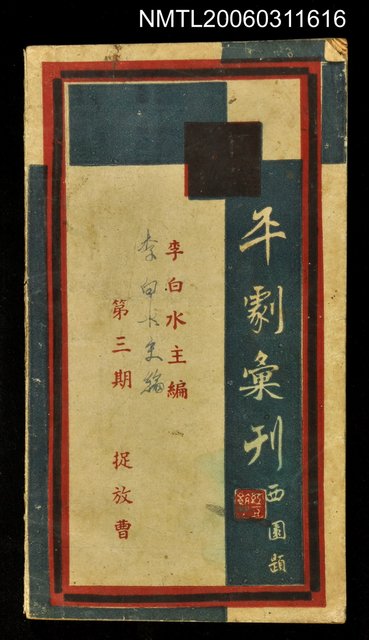 NMTL20060311616
平劇彙刊
西園題
李白水主編
李白水主編
第三期 捉放曹